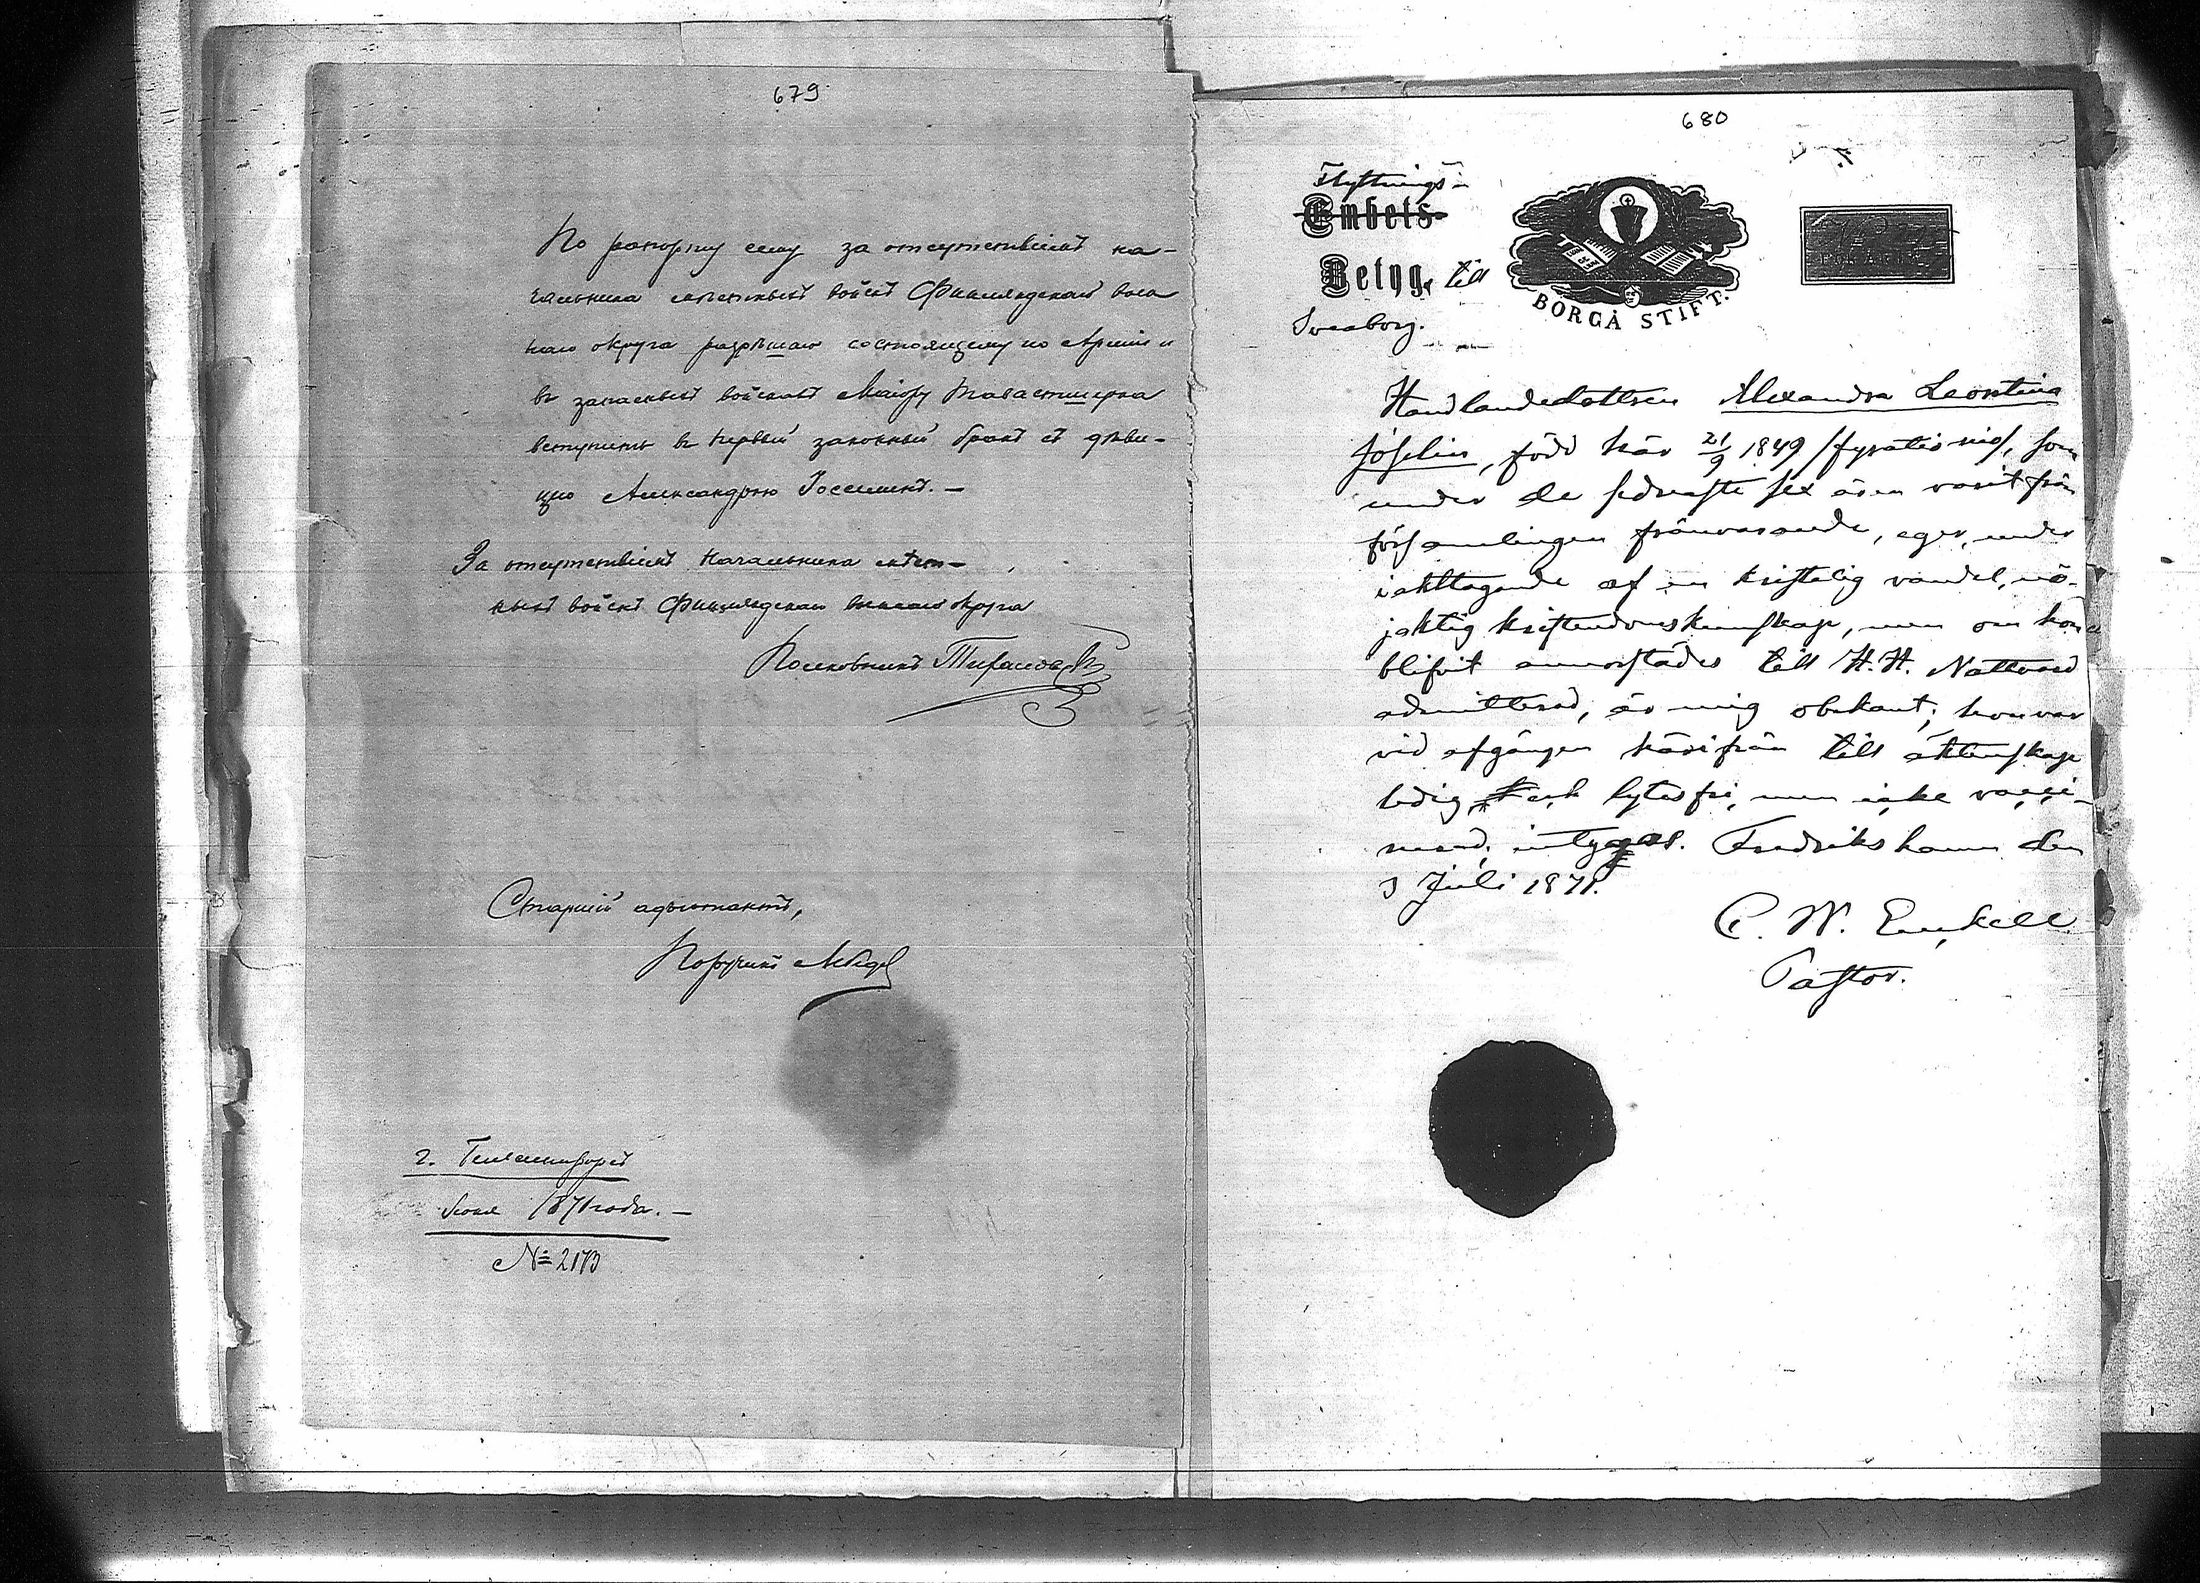 679
По рапорту сему за отсутствіемъ на-
чальника мѣстныхъ войскъ Финляндскаго воен
наго округа разрѣшаю состоящему по Арміи и
въ запасныхъ войскахъ Маіору Тавастшерна
вступить въ первый законный бракъ съ дѣви-
цею Александрою Іоселинъ. —
За отсутствіемъ Начальника мѣст-
ныхъ войскъ Финляндскаго военнаго округа
Полковникъ
Старшій адъютантъ,
Поручикъ
г. Гельсингфорсъ
1871 года. —
№ 2173
680
Flyttnings-
Embets-
Betyg, till
Sveaborg.
BORGÅ STIFT.
Handlandedottren Alexandra Leontina
Joselin, född här 21/9 1849 /fyrationio/, som
under de sednaste sex åren varit från
församlingen frånvarande, eger, under
iakttagande af en kristelig vandel, nö-
jaktig kristendomskunskap, men om hon
blifvit annorstädes till H. H. Nattvard
admitterad, är mig obekant; hon var
vid afgången härifrån till äktenskap
ledig, och lytesfri, men icke vacci-
nerad, intygas. Fredrikshamn den
3 Juli 1871.
C. W. Enckell
Pastor.